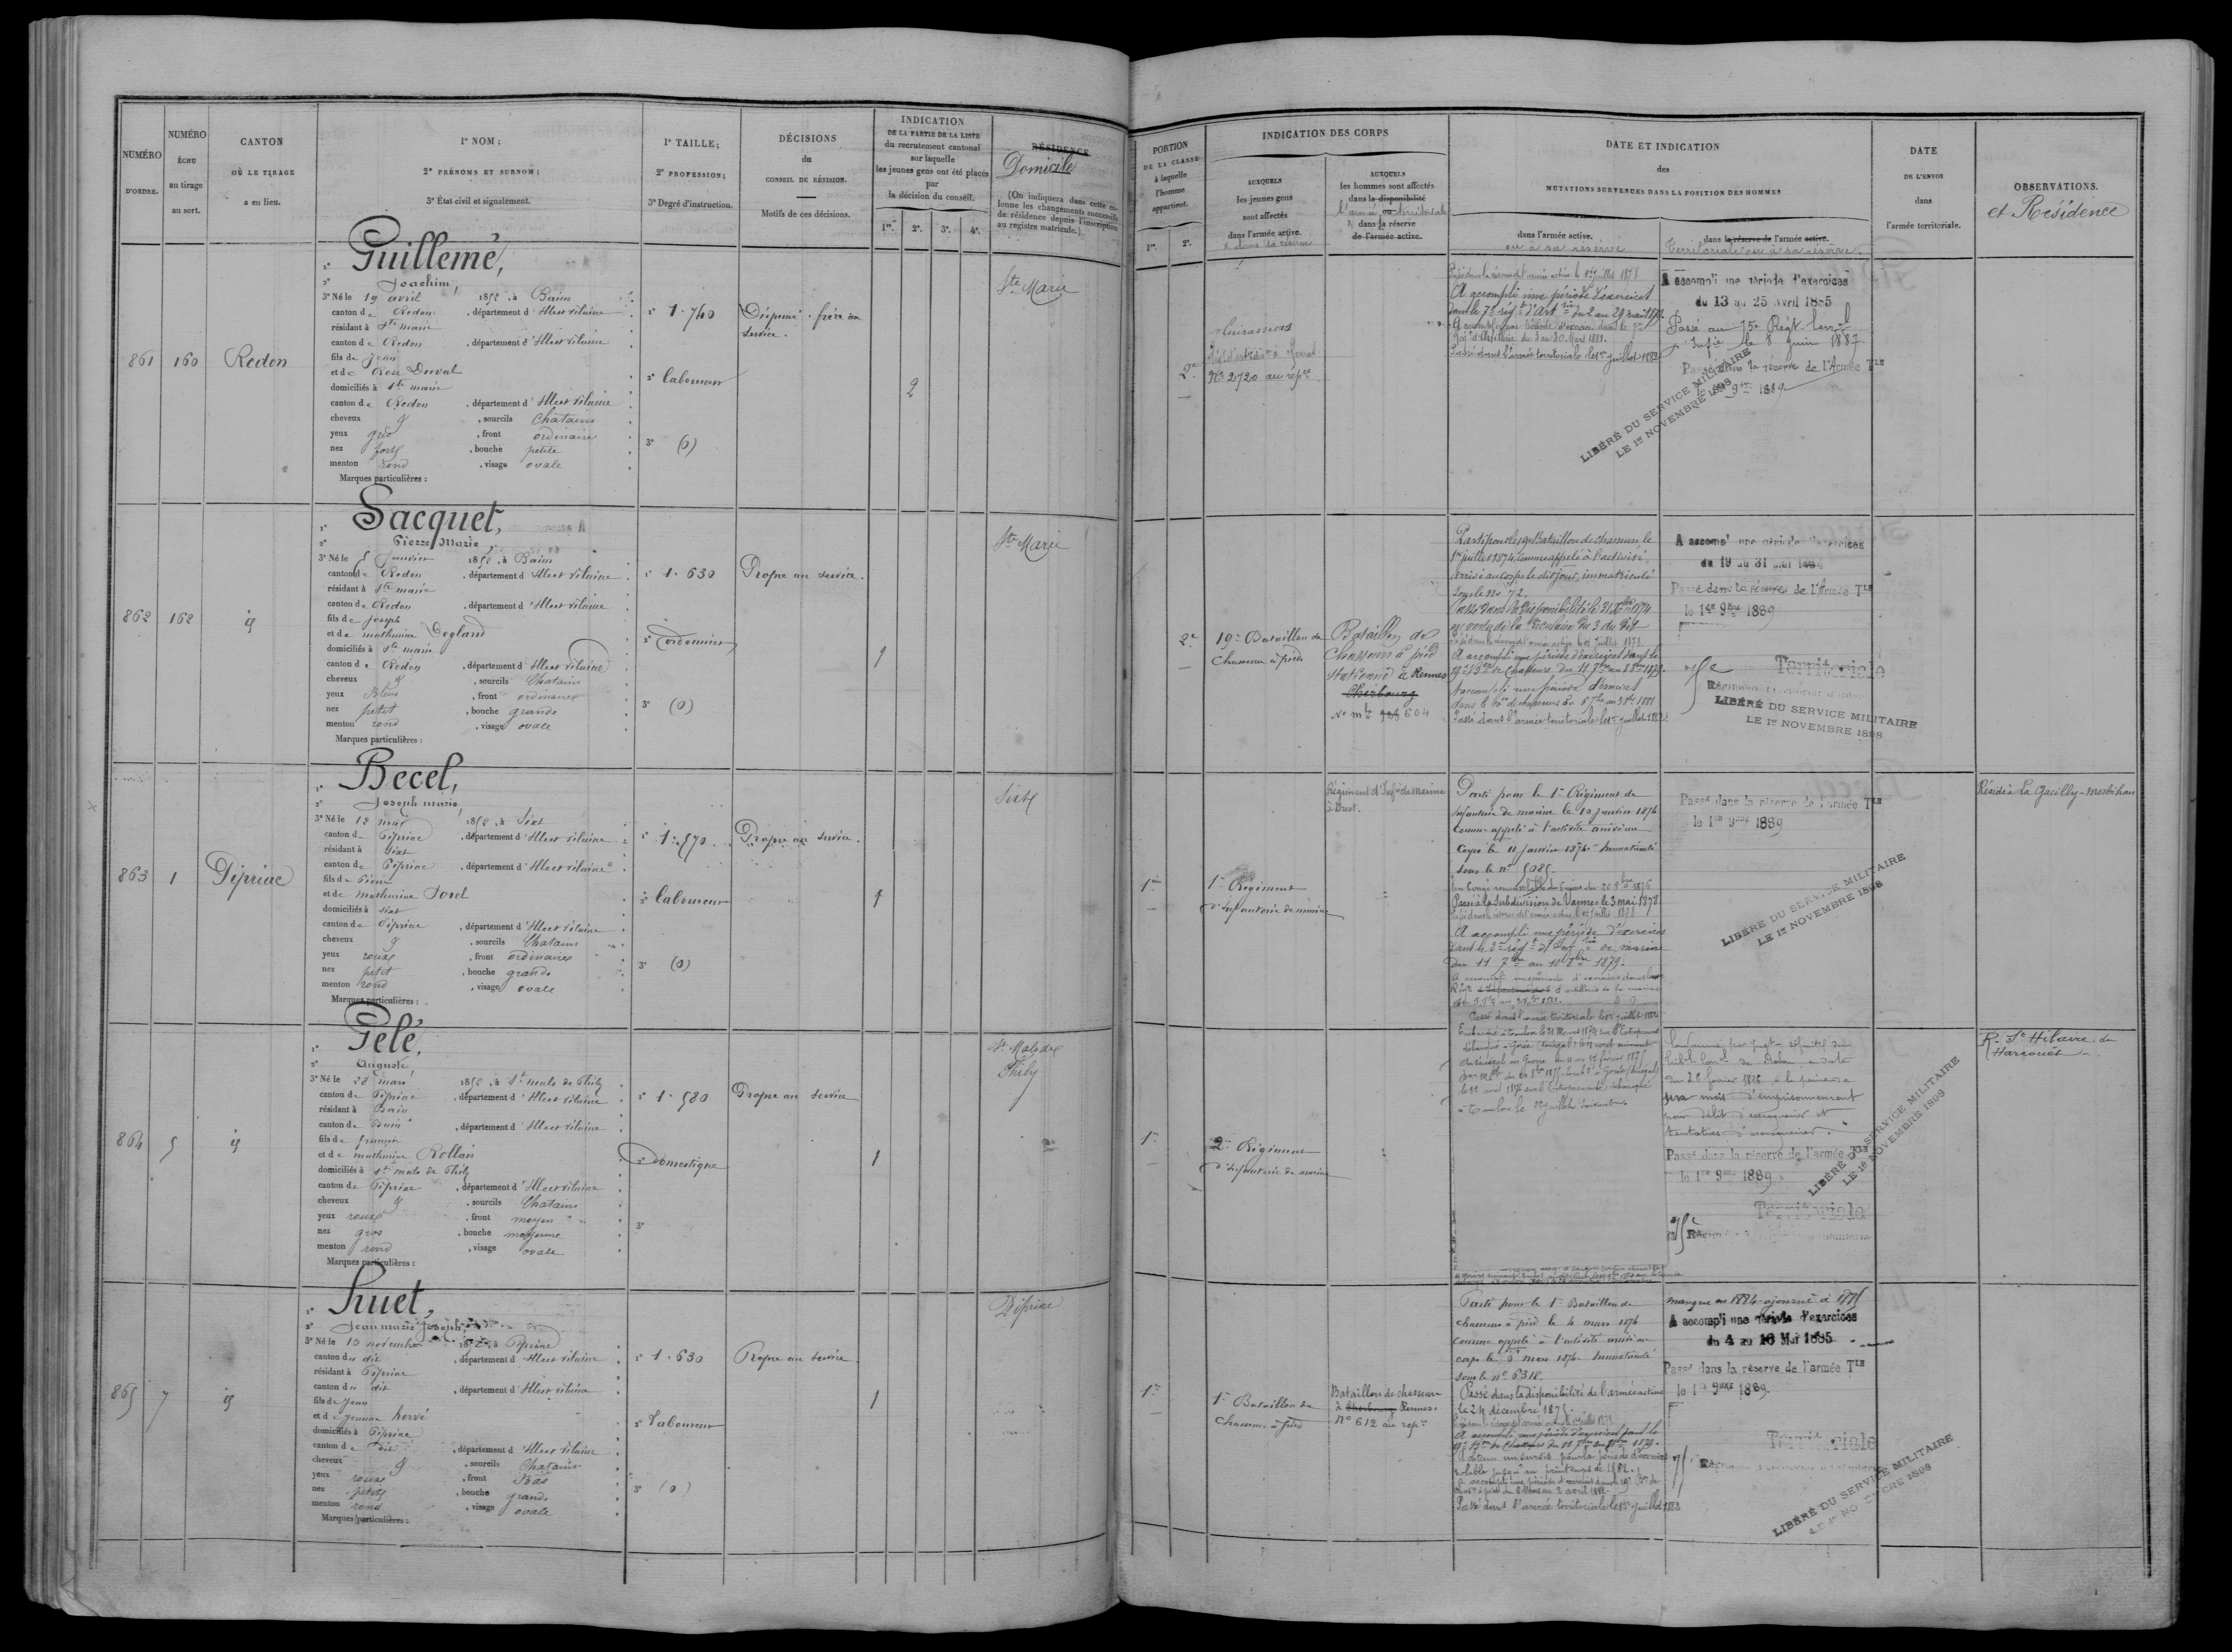 NUMÉRO
D'ORDRE.
NUMÉRO
ÉCHU
au tirage
au sort.
CANTON
OÙ LE TIRAGE
a eu lieu.
1º NOM;
2º PRÉNOMS ET SURNOM;
3º État civil et signalement.
1º TAILLE;
2º PROFESSION;
3º Degré d'instruction.
DÉCISIONS
du
CONSEIL DE RÉVISION.
Motifs de ces décisions.
INDICATION
DE LA PARTIE DE LA LISTE
du recrutement cantonal
sur laquelle
les jeunes gens ont été placés
par
la décision du conseil.
1re. 2e. 3e. 4e.
RÉSIDENCE
Domicile
(On indiquera dans cette colonne les changements successifs de résidence depuis l'inscription au registre matricule.)
861
160
Redon
1º Guillemé,
2º Joachim,
3º Né le 19 avril 1852, à Bains
canton de Redon, département d'Ille et Vilaine
résidant à Ste marie
canton de Redon, département d'Ille et Vilaine
fils de Jean
et de Duval
domiciliés à Ste marie
canton de Redon, département d'Ille et Vilaine
cheveux &, sourcils Chatains
yeux gris, front ordinaire
nez fort, bouche petite
menton rond, visage ovale
Marques particulières :
1º 1.740
2º laboureur
3º (0)
Dispensé. frère au
service.
2
Ste Marie
862
162
id
1º Sacquet,
2º Pierre Marie
3º Né le 5 Janvier 1852, à Bains
canton de Redon, département d'Ille et Vilaine
résidant à Ste marie
canton de Redon, département d'Ille et Vilaine
fils de joseph
et de mathurine Degland
domiciliés à Ste marie
canton de Redon, département d'Ille et Vilaine
cheveux &, sourcils Chatains
yeux Bleus, front ordinaire
nez petit, bouche grande
menton rond, visage ovale
Marques particulières :
1º 1.630
2º Cordonnier
3º (0)
Propre au service.
1
Ste Marie
863
1
Pipriac
1º Becel,
2º Joseph marie,
3º Né le 12 mai 1852, à Sixt
canton de Pipriac, département d'Ille et Vilaine
résidant à Sixt
canton de Pipriac, département d'Ille et Vilaine
fils de Pierre
et de mathurine Sorel
domiciliés à Sixt
canton de Pipriac, département d'Ille et Vilaine
cheveux &, sourcils Chatains
yeux roux, front ordinaire
nez petit, bouche grande
menton rond, visage ovale
Marques particulières :
1º 1.570.
2º laboureur
3º (0)
Propre au service.
1
Sixt
864
5
id
1º Gelé,
2º Auguste,
3º Né le 28 mars 1852, à St malo de Phily
canton de Pipriac, département d'Ille et Vilaine
résidant à Bain
canton de Bain, département d'Ille et Vilaine
fils de françois
et de mathurine Rollais
domiciliés à St malo de Phily
canton de Pipriac, département d'Ille et Vilaine
cheveux &, sourcils Chatains
yeux roux, front moyen
nez gros, bouche moyenne
menton rond, visage ovale
Marques particulières :
1º 1.580
2º Domestique
3º
Propre au service
1
St Malo de
Phily
865
7
id
1º Huet,
2º Jean marie Joseph,
3º Né le 10 novembre 1852, à Pipriac
canton du dit, département d'Ille et Vilaine
résidant à Pipriac
canton du dit, département d'Ille et Vilaine
fils de Jean
et de Jeanne hervé
domiciliés à Pipriac
canton de dit, département d'Ille et Vilaine
cheveux &, sourcils Chatains.
yeux roux, front Bas
nez petit, bouche grande
menton rond, visage ovale
Marques particulières :
1º 1.630
2º Laboureur
3º (0)
Propre au service
1
Pipriac
PORTION
DE LA CLASSE
à laquelle
l'homme
appartient.
1re. 2e.
INDICATION DES CORPS
AUXQUELS
les jeunes gens
sont affectés
dans l'armée active.
& dans sa réserve
AUXQUELS
les hommes sont affectés
dans la disponibilité
l'armée territoriale
& dans la réserve
de l'armée active.
DATE ET INDICATION
des
MUTATIONS SURVENUES DANS LA POSITION DES HOMMES
dans l'armée active.
ou à sa réserve
dans la réserve de l'armée active.
Territoriale ou à sa réserve.
DATE
DE L'ENVOI
dans
l'armée territoriale.
OBSERVATIONS.
et Résidence
2e
Cuirassiers
No 2720 au rép.re
Passé dans la réserve de l'armée active le 1er juillet 1878
A accompli une période d'exercices
dans le 7e régt d'Artrie du 2 au 29 mai 1879.
Passé dans l'armée territoriale le 1er juillet 1882
A accompli une période d'exercices
du 13 au 25 avril 1885
Passé au 75e Régt terral
Infie le 8 Juin 1887
Passé dans la réserve de l'Armée TLE
le 1er 9bre 1889
LIBÉRÉ DU SERVICE MILITAIRE
LE 1er NOVEMBRE 1898
2e
19e Bataillon de
Chasseurs à pied
Bataillon de
Chasseurs à pied
stationné à Rennes
Cherbourg
No mle 604
Parti pour le 19e Bataillon de chasseurs le
1er juillet 1874, comme appelé à l'activité,
arrivé au corps le dit jour, immatriculé
sous le No 72.
Passé dans la disponibilité le 31 Xbre 1874
en vertu de la circulaire du 3 du dit
Passé dans la réserve de l'armée active le 1er juillet 1878
A accompli une période d'exercices dans le
19e Bon de Chasseurs du 11 7bre au 8 8bre 1879.
Passé dans l'armée territoriale le 1er juillet 1882
A accompli une période d'exercices
du 19 au 31
Passé dans la réserve de l'Armée TLE
le 1er 9bre 1889
Territoriale
LIBÉRÉ DU SERVICE MILITAIRE
LE 1er NOVEMBRE 1898
1ère
1er Régiment
d'infanterie de marine
Régiment d'Infie de Marine
à Brest.
Parti pour le 1er Régiment de
infanterie de marine le 10 janvier 1874
comme appelé à l'activité arrivé au
Corps le 11 janvier 1874. Immatriculé
sous le no 5085.
Passé à la Subdivision de Vannes le 3 mai 1878
A accompli une période d'exercices
dans le 2e régt d'Infrie de marine
du 11 7bre au 10 8bre 1879.
Passé dans l'armée territoriale le 1er juillet 1882
Passé dans la réserve de l'armée TLE
le 1er 9bre 1889
LIBÉRÉ DU SERVICE MILITAIRE
LE 1er NOVEMBRE 1898
Réside à La Gacilly-Morbihan
1re
2e Régiment
d'infanterie de marine
à Toulon le 22 juillet suivant
d'emprisonnement
pour délit d'escroquerie et
tentative d'escroquerie.
Passé dans la réserve de l'armée TLE
le 1er 9bre 1889
Territoriale
LIBÉRÉ DU SERVICE MILITAIRE
LE 1er NOVEMBRE 1898
R. St Hilaire du
Harcouët
1re
1er Bataillon de
Chasseurs à pied
Bataillon de chasseurs
à Cherbourg Rennes.
No 612 au rép.re
Parti pour le 1er Bataillon de
chasseurs à pied le 4 mars 1874
comme appelé à l'activité arrivé au
corps le 6 mars 1874. Immatriculé
sous le no 6318.
Passé dans la disponibilité de l'armée active
le 24 décembre 1875.
A accompli une période d'exercices dans le
19e Bon de Chasseurs du 11 7bre au 8 8bre 1879.
A obtenu un sursis pour la période d'exercices
valable jusqu'au printemps de 1882.
Passé dans l'armée territoriale le 1er juillet 1882
manque en 1884 ajourné à 1885
A accompli une période d'exercices
du 4 au 16 Mai 1885
Passé dans la réserve de l'armée TLE
le 1er 9bre 1889.
Territoriale
LIBÉRÉ DU SERVICE MILITAIRE
LE 1er NOVEMBRE 1898